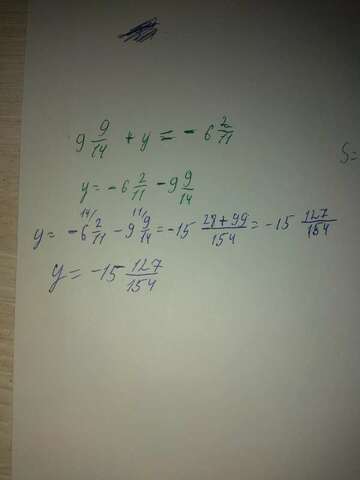 9 9/14 + y = - 6 2/11
S=
y = - 6 2/11 - 9 9/14
y = - 6 14/ 2/11 - 9 11/ 9/14 = - 15 28+99/154 = - 15 127/154
y = - 15 127/154